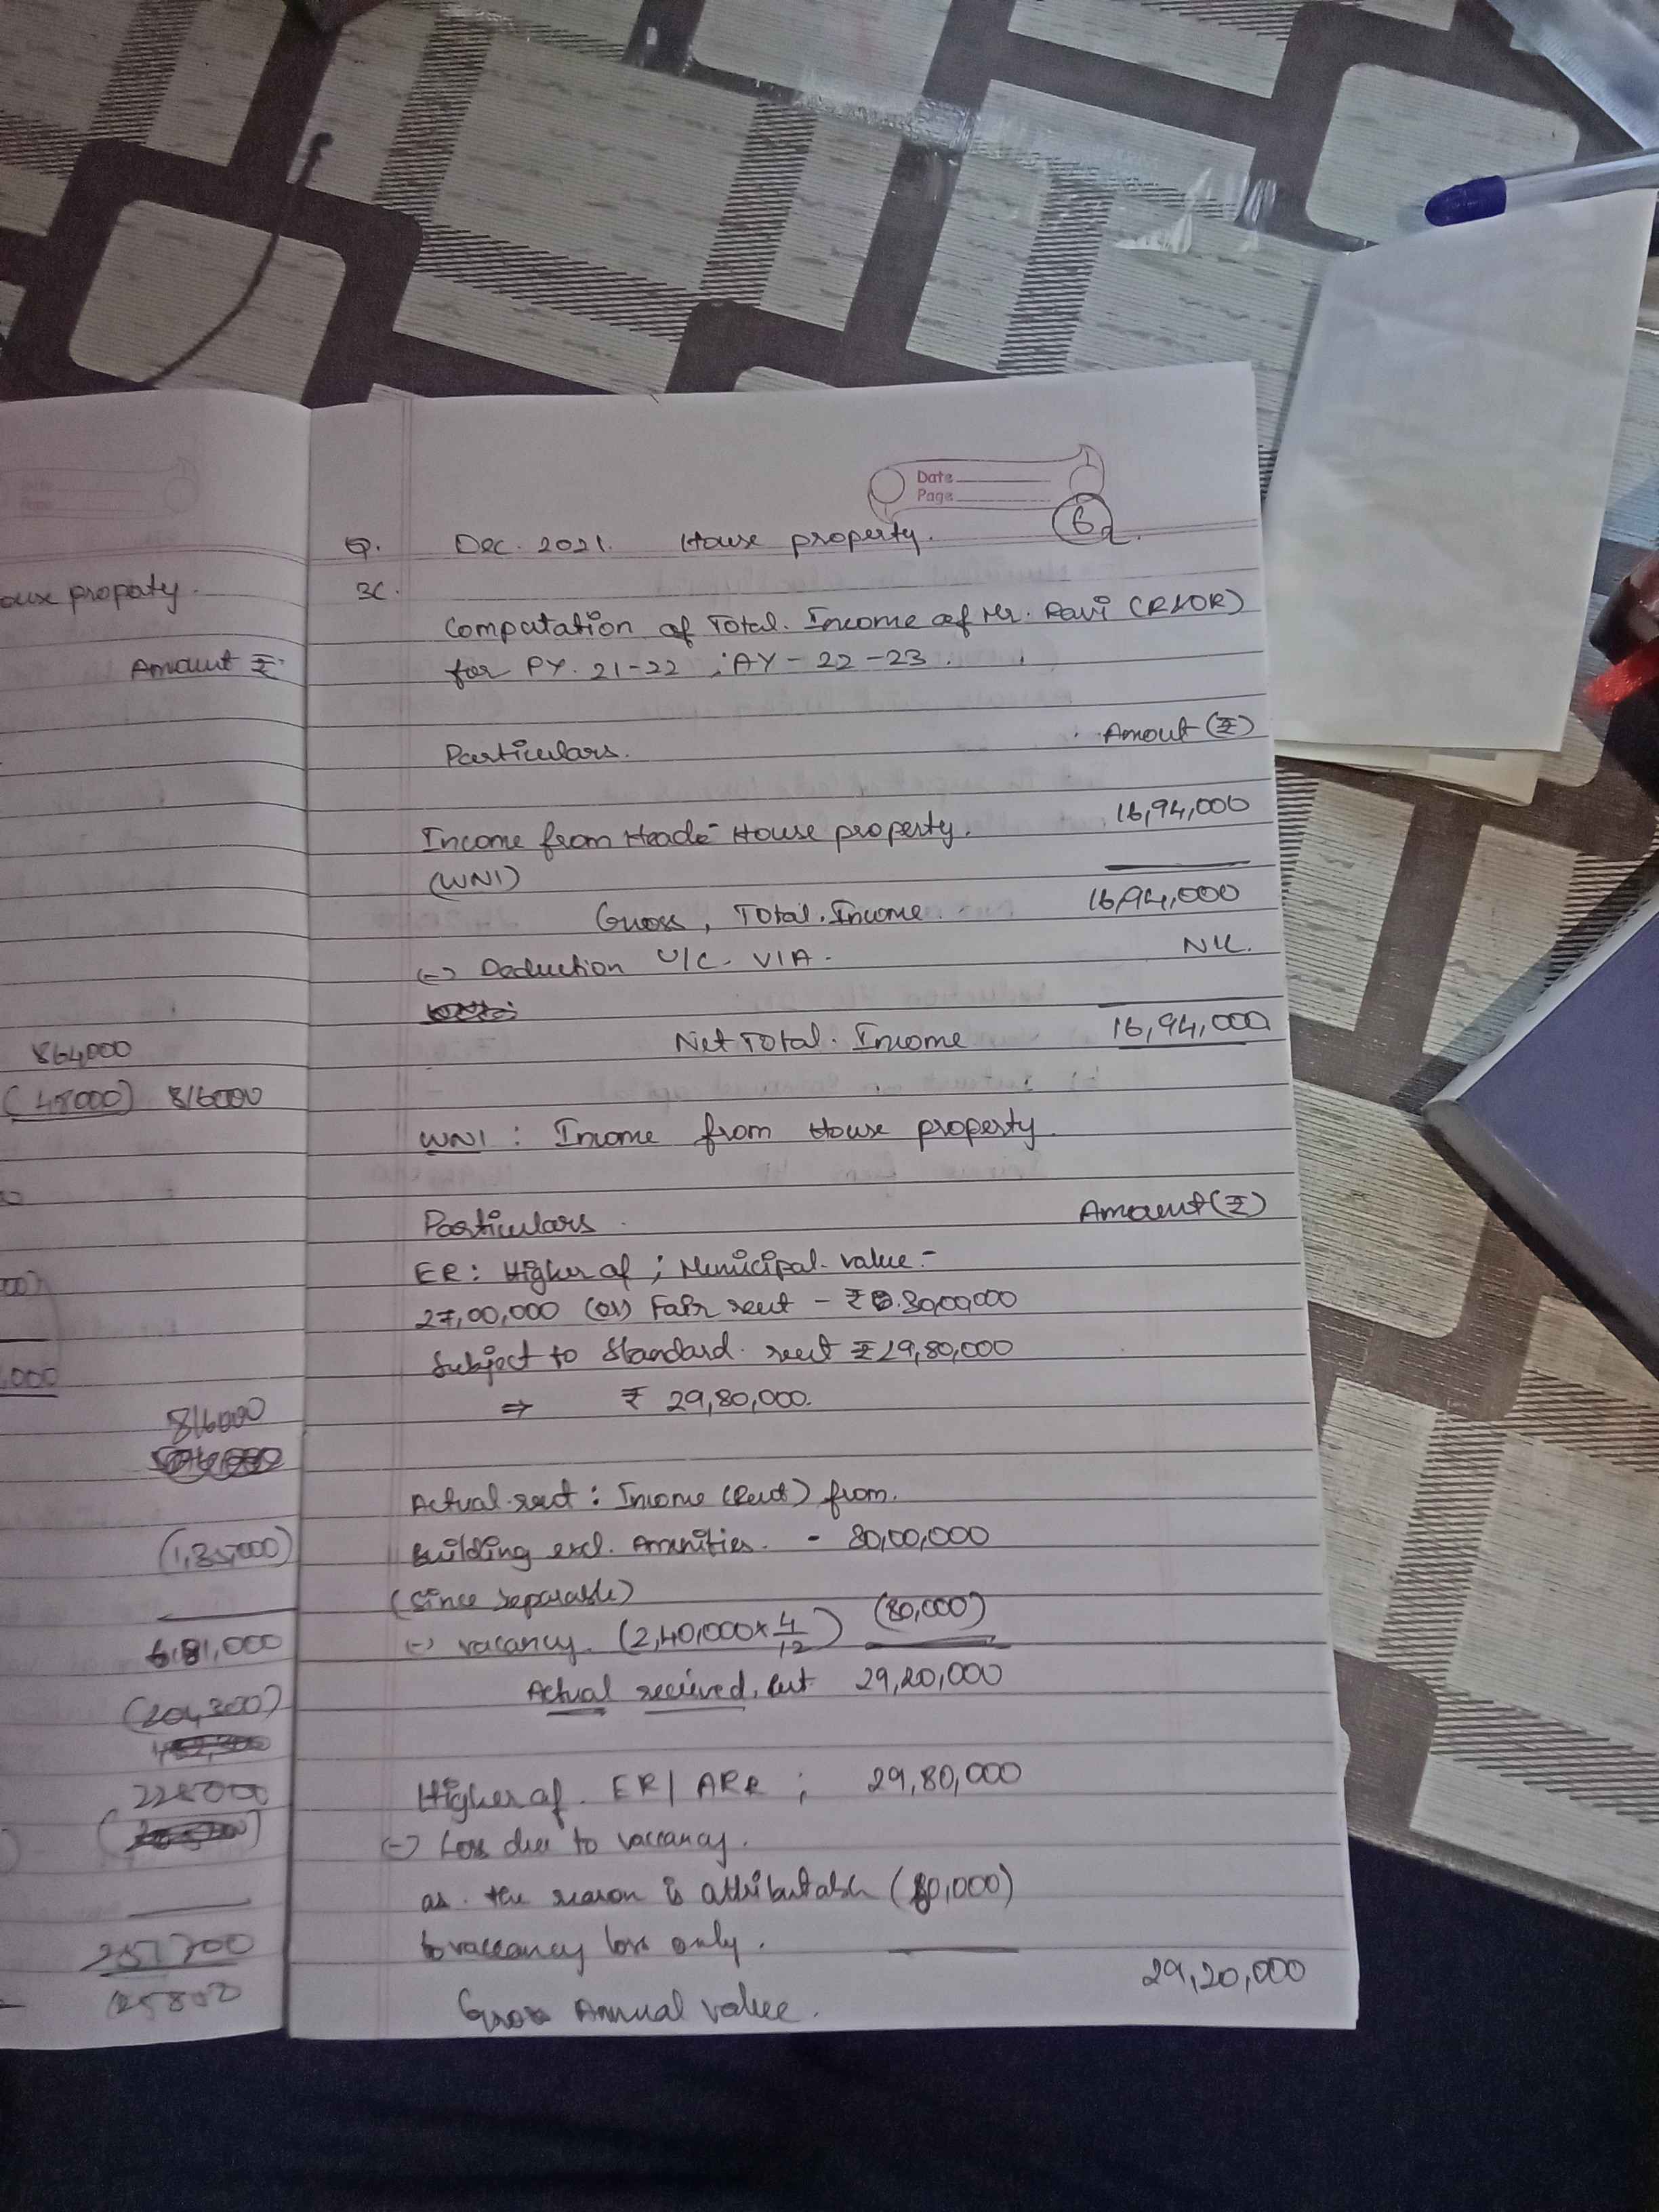 oux propaty.
Amount ₹
864000
(48000) 816000
000
816000
(1,35,000)
6,81,000
(204,300)
225000
257700
Date
Page
6
Q. Dec. 2021. House property.
3C.
Computation of Total. Income of Mr. Ravi (R&OR)
for PY. 21-22 ; AY - 22 - 23.
Particulars. Amout (₹)
Income from Head- House property. 16,94,000
(WN1)
Gross, Total. Income. 16,94,000
(-) Deduction U/C- VIA. NIL.
Net Total. Income 16,94,000
WN1 : Income from House property
Particulars Amount (₹)
ER: Higher of ; Municipal value -
27,00,000 (or) Fair rent - ₹ 30,00,000
Subject to Standard. rent ₹ 29,80,000
⇒ ₹ 29,80,000.
Actual rent : Income (Rent) from.
Building excl. Amenities. - 30,00,000
(Since separable)
(-) vacancy. (2,40,000 × 4/12) (80,000)
Actual recieved, rent 29,20,000
Higher of. ER/ARR ; 29,80,000
(-) Loss due to vaccancy.
as. the reason is attributable (60,000)
to vaccancy loss only.
Gross Annual value. 29,20,000